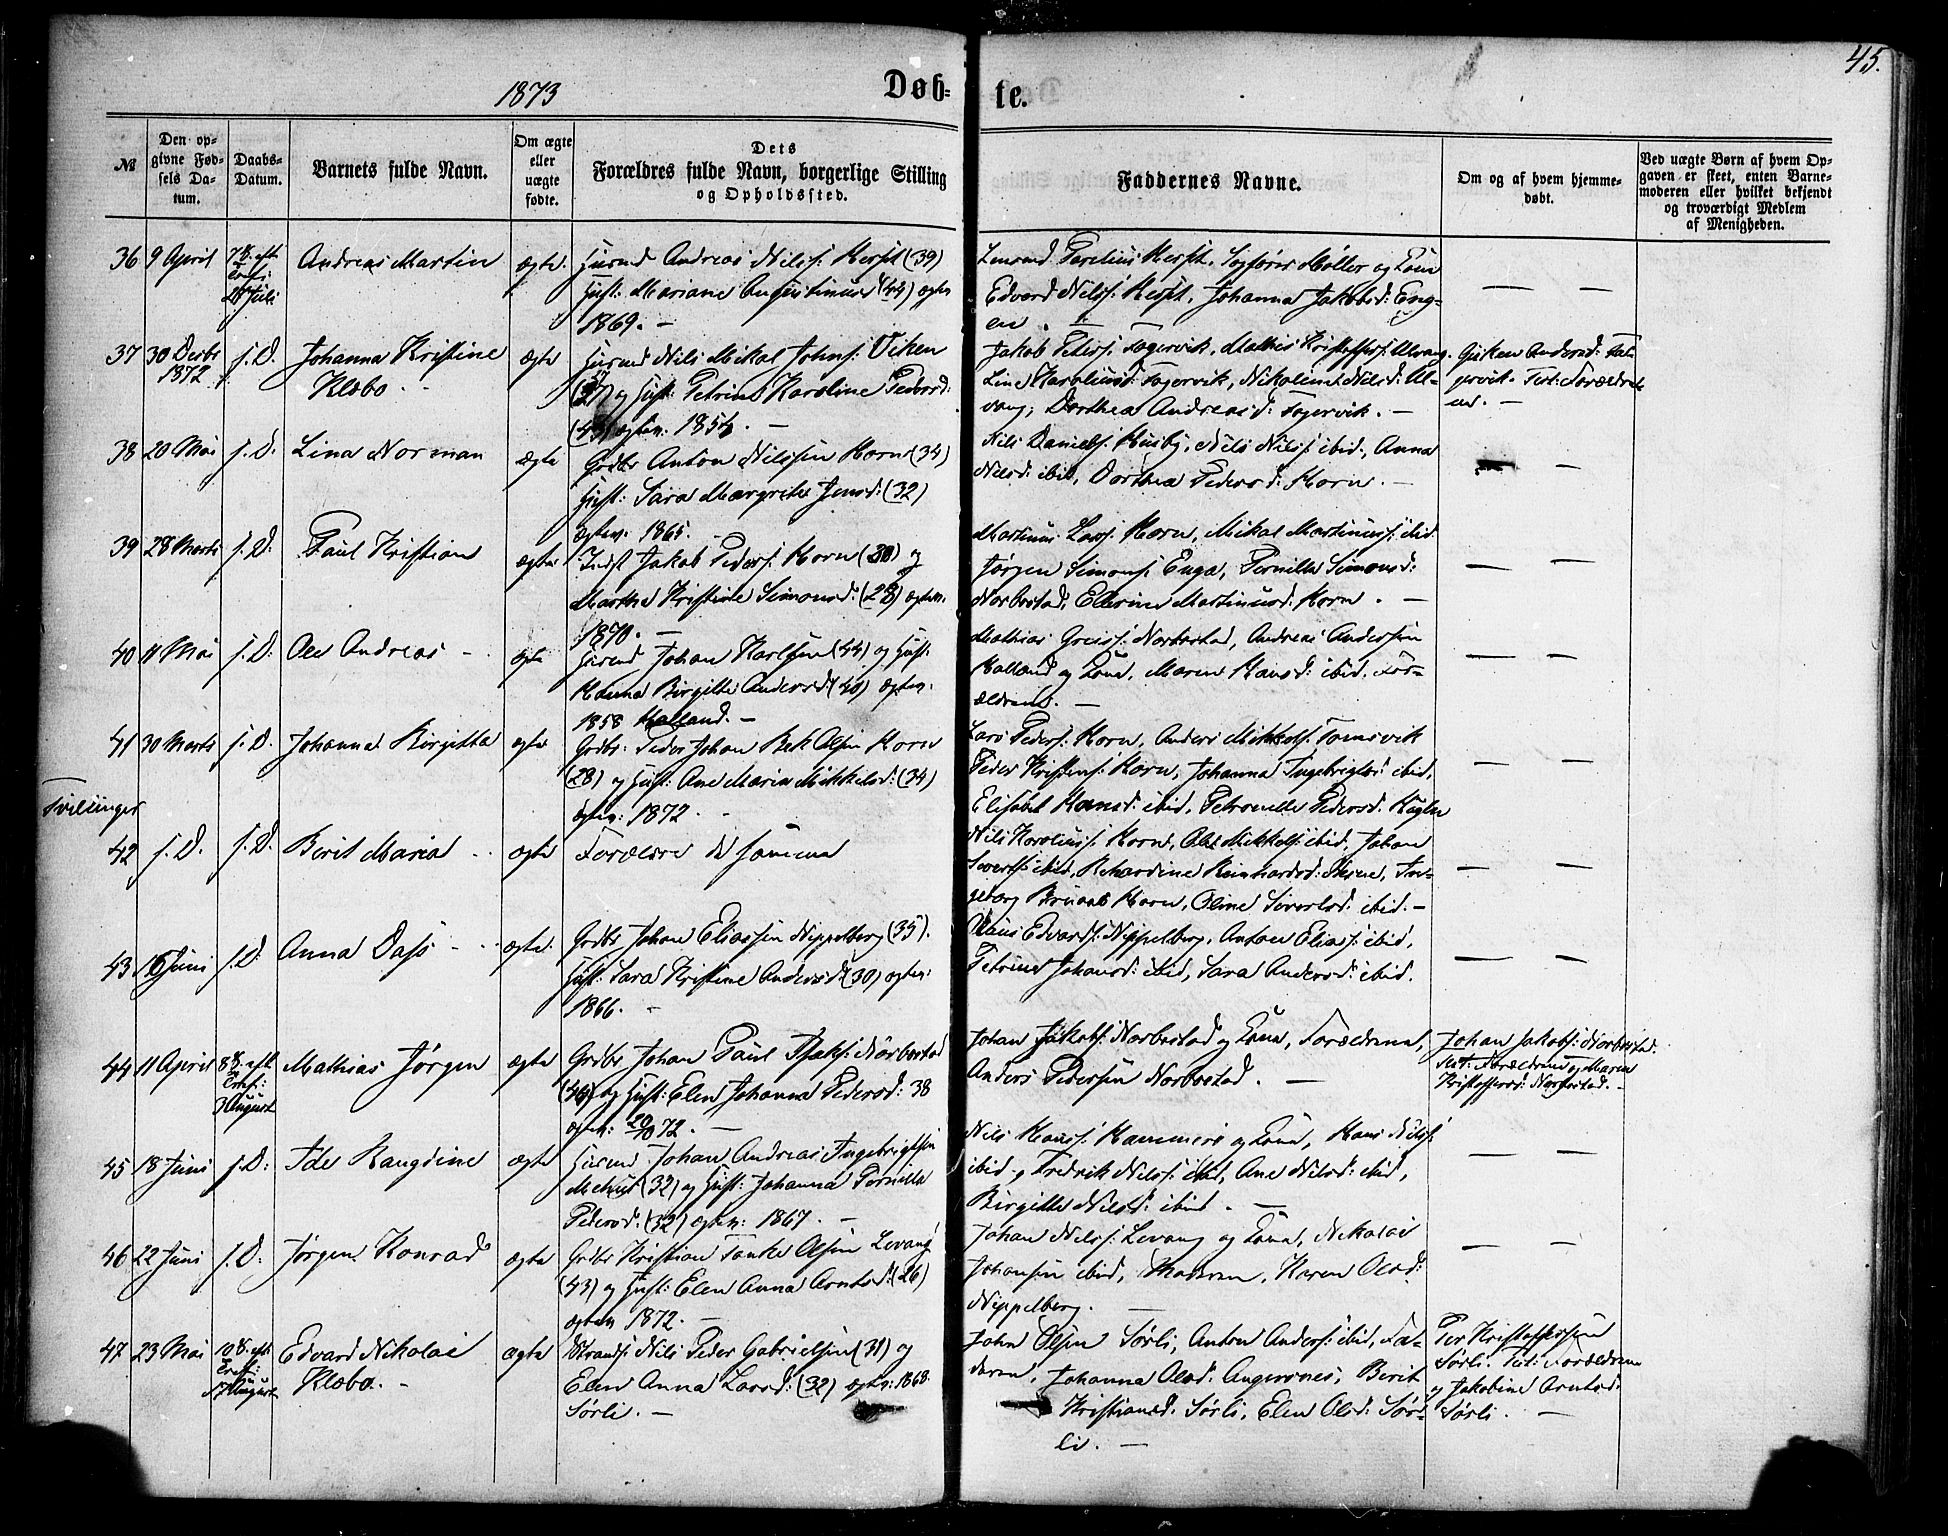 45.
1873
Døb-
te.
№
Den op-
givne Fød-
sels Da-
tum.
Daabs-
Datum.
Barnets fulde Navn.
Om ægte
eller
uægte
fødte.
Dets
Forældres fulde Navn, borgerlige Stilling
og Opholdssted.
Faddernes Navne.
Om og af hvem hjemme-
døbt.
Ved uægte Børn af hvem Op-
gaven er skeet, enten Barne-
moderen eller hvilket bekjendt
og troværdigt Medlem
af Menigheden.
36 9 April
Juli
Andreas Martin
ægte.
Andreas Nilss: (39)
Hust: Mariane (44) ægtev.
1869. —
Edvard Nilss: Johanna Jakobsd: Eng-
en. —
— —
37 30 Decbr
1872
s. D.
Johanna Kristine
Klæbo.
ægte
Nils Mikal Johns: Viken
og Hust: Karoline Pedersd:
ægtev. 1854. —
Jakob Peters: Fagervik,
Fagervik, Nils d: Al-
vang, Dorthea Andreasd: Fagervik. —
Andersd: Fa-
gervik. Test: Forældre-
ne. —
38 20 Mai
s. D.
Lina Norman
ægte
Grdbr Anton Nilssen Horn (34)
Hust: Sara Margrethe Jensd: (32)
ægtev. 1865. —
Nils Daniels: Husby, Nils Nilss: ibid., Anna
Nilsd: ibid, Dorthea Pedersd: Horn. —
— —
39 28 Marts
s. D.
Paul Kristian
ægte
Indst Jakob Peders: Horn (30) og
Martha Kristine Simonsd: (28) ægtev.
1870. —
Martinus Lars: Horn, Mikal Martinuss: ibid
Jørgen Simons: Enga, Pernilla Simonsd:
Norbostad, Martinusd: Horn. —
— —
40 11 Mai
s. D:
Ole Andreas
ægte
Johan Karlsen (44) og Hust:
Hanna Birgitte Andersd: (40) ægtev.
1858 Halland. —
Mathias Norbostad, Andreas Andersen
Halland og Kone, Maren Hansd: ibid, For-
ældrene. —
— —
41 30 Marts
s. D.
Johanna Birgitta
ægte
Grdbr: Peder Johan Bek Olsen Horn
(28) og Hust: Ane Maria Mikkelsd: (34)
ægtev: 1872.
Lars Peders: Horn, Anders Mikkels: Tomsvik
Peder Kristens: Horn, Johanna ibid,
Elisabet Hansd: ibid, Petronella Pedersd:
— —
Tvillinger
42 s. D.
s. D.
Berit Maria
ægte
Forældre de samme
Nils Karoliuss: Horn, Ole Mikkels: ibid, Johan
ibid, In-
geborg Horn, Oline Sivertsd: ibid. —
— —
43 16 Juni
s. D.
Anna Dass
ægte.
Grdbr Johan Eliassen Nippelberg (35).
Hust: Sara Kristine Andersd: (30) ægtev:
1866. —
Edvards: Nippelberg, Anton Elias: ibid,
Petrine Johansd: ibid, Sara Andersd: ibid.
— —
44 11 April
3 August
Mathias Jørgen
ægte
Grdbr Johan Paul Isaks: Norbostad
og Hust: Elen Johanna Pedersd: 38
ægtev: 20/10 72. —
Johan Jakobs: Norbostad og Kone, Forældrene,
Anders Pedersen Norbostad. —
Johan Jakobs: Norbostad.
Test: Forældrene og Maren
Kristoffersd: Norbostad. —
45 18 Juni
s. D:
Ida Raugdine
ægte
Johan Andreas Ingebrigtsen
(32) og Hust: Johanna Pernilla
Pedersd. (32) ægtev: 1867. —
Nils Hans: Hammerø og Kone, Hans Nilss:
ibid, Fredrik Nilss: ibid, Ane Nilsd: ibid,
Birgitte Nilsd: ibid. —
— —
46 22 Juni
s. D:
Jørgen Konrad
ægte
Grdbr Kristian Tanke Olsen Levang
(43) og Hust: Elen Anna Arntsd: (26)
ægtev 1872. —
Johan Nilss: Levang og Kone, Nikolai
Johansen ibid, Moderen, Karen Olsd:
Nippelberg. —
— —
47 23 Mai
17 August
Edvard Nikolai
Klæbo. —
ægte
Nils Peder Gabrielsen (31) og
Elen Anna Larsd: (32) ægtev: 1868
Sørli. —
John Olsen Sørli, Anton Anders: ibid, Fa-
deren, Johanna Olsd: Angersnes, Berit
Kristiansd: Sørli, Elen Olsd: Sør-
li. —
Per Kristoffersen
Sørli. Test: Forældrene
og Jakobine Arntsd:
Sørli. —